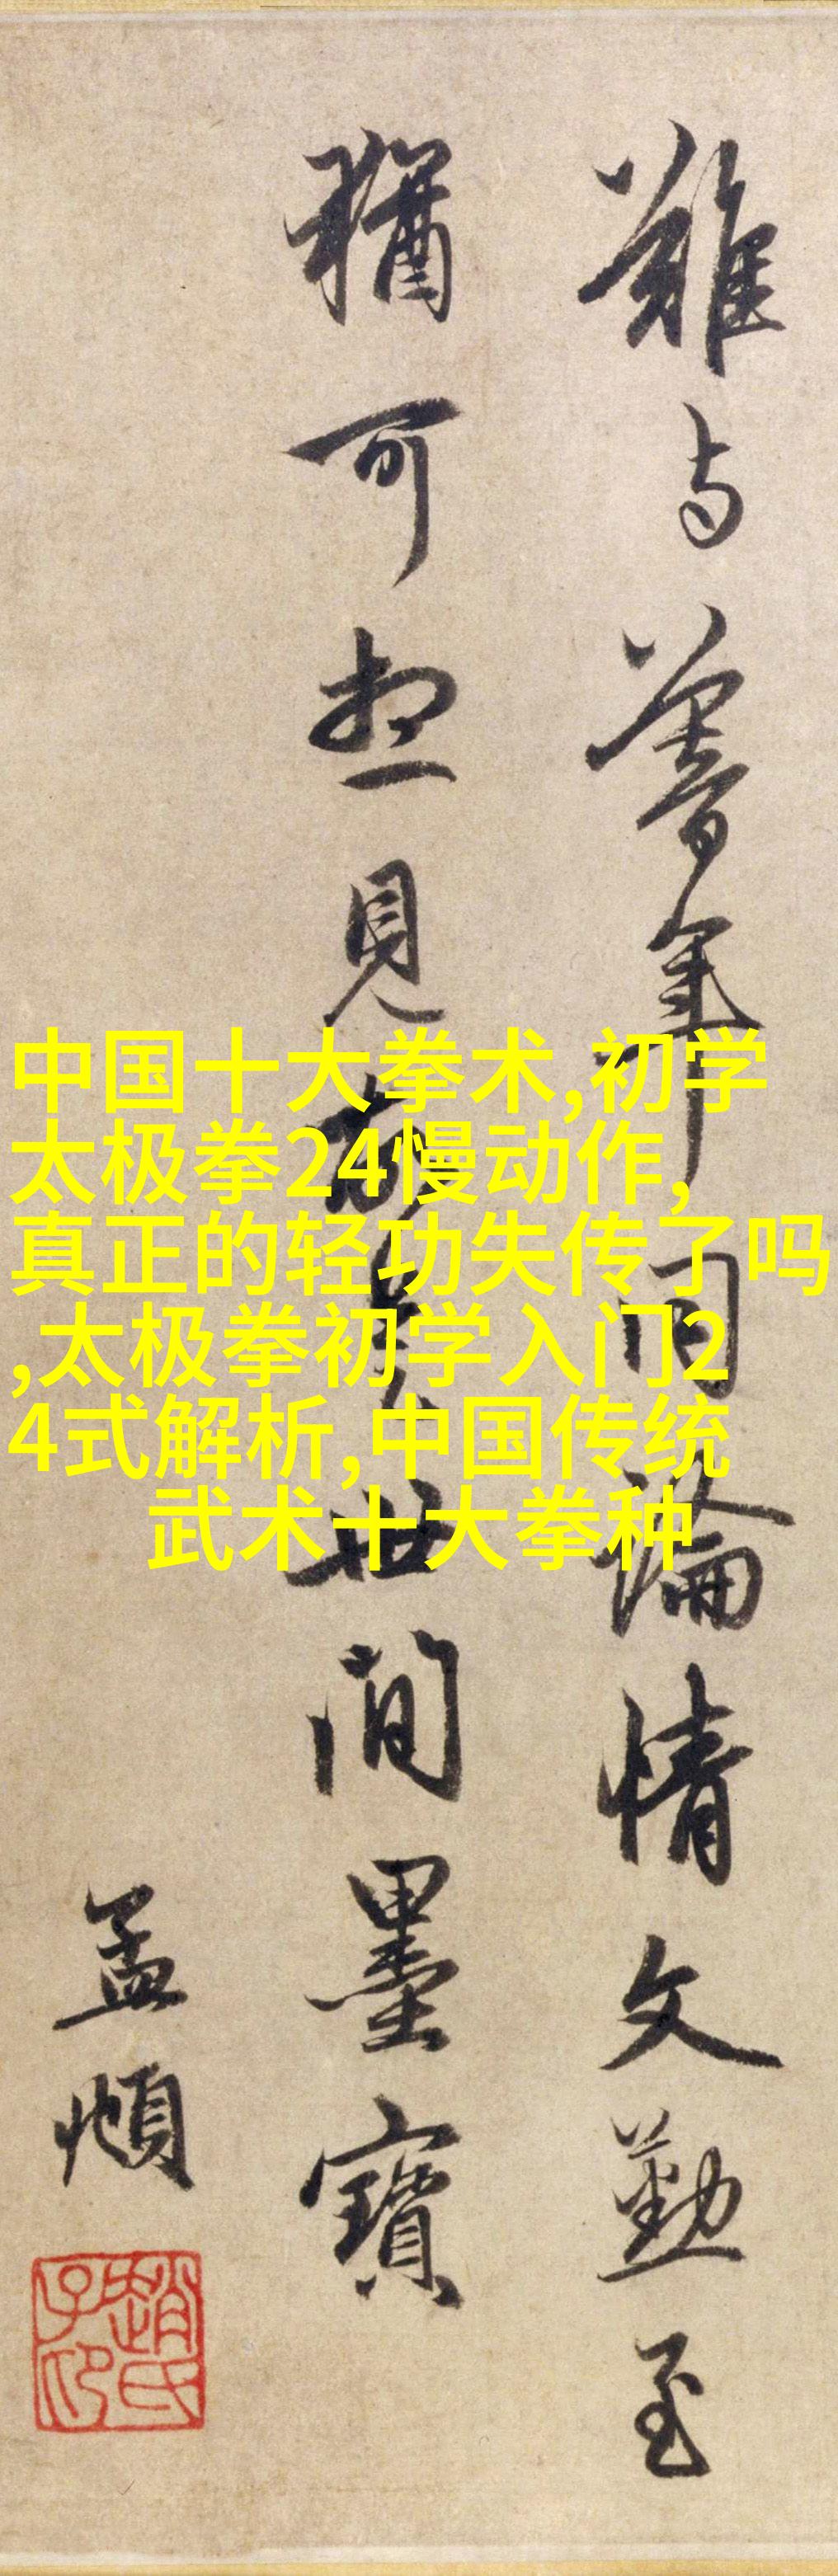 難与暮年同論情文勤至
猶可想見故是世間墨寶
孟頫
趙氏子印
中国十大拳术,初学
太极拳24慢动作,
真正的轻功失传了吗
,太极拳初学入门2
4式解析,中国传统
武术十大拳种